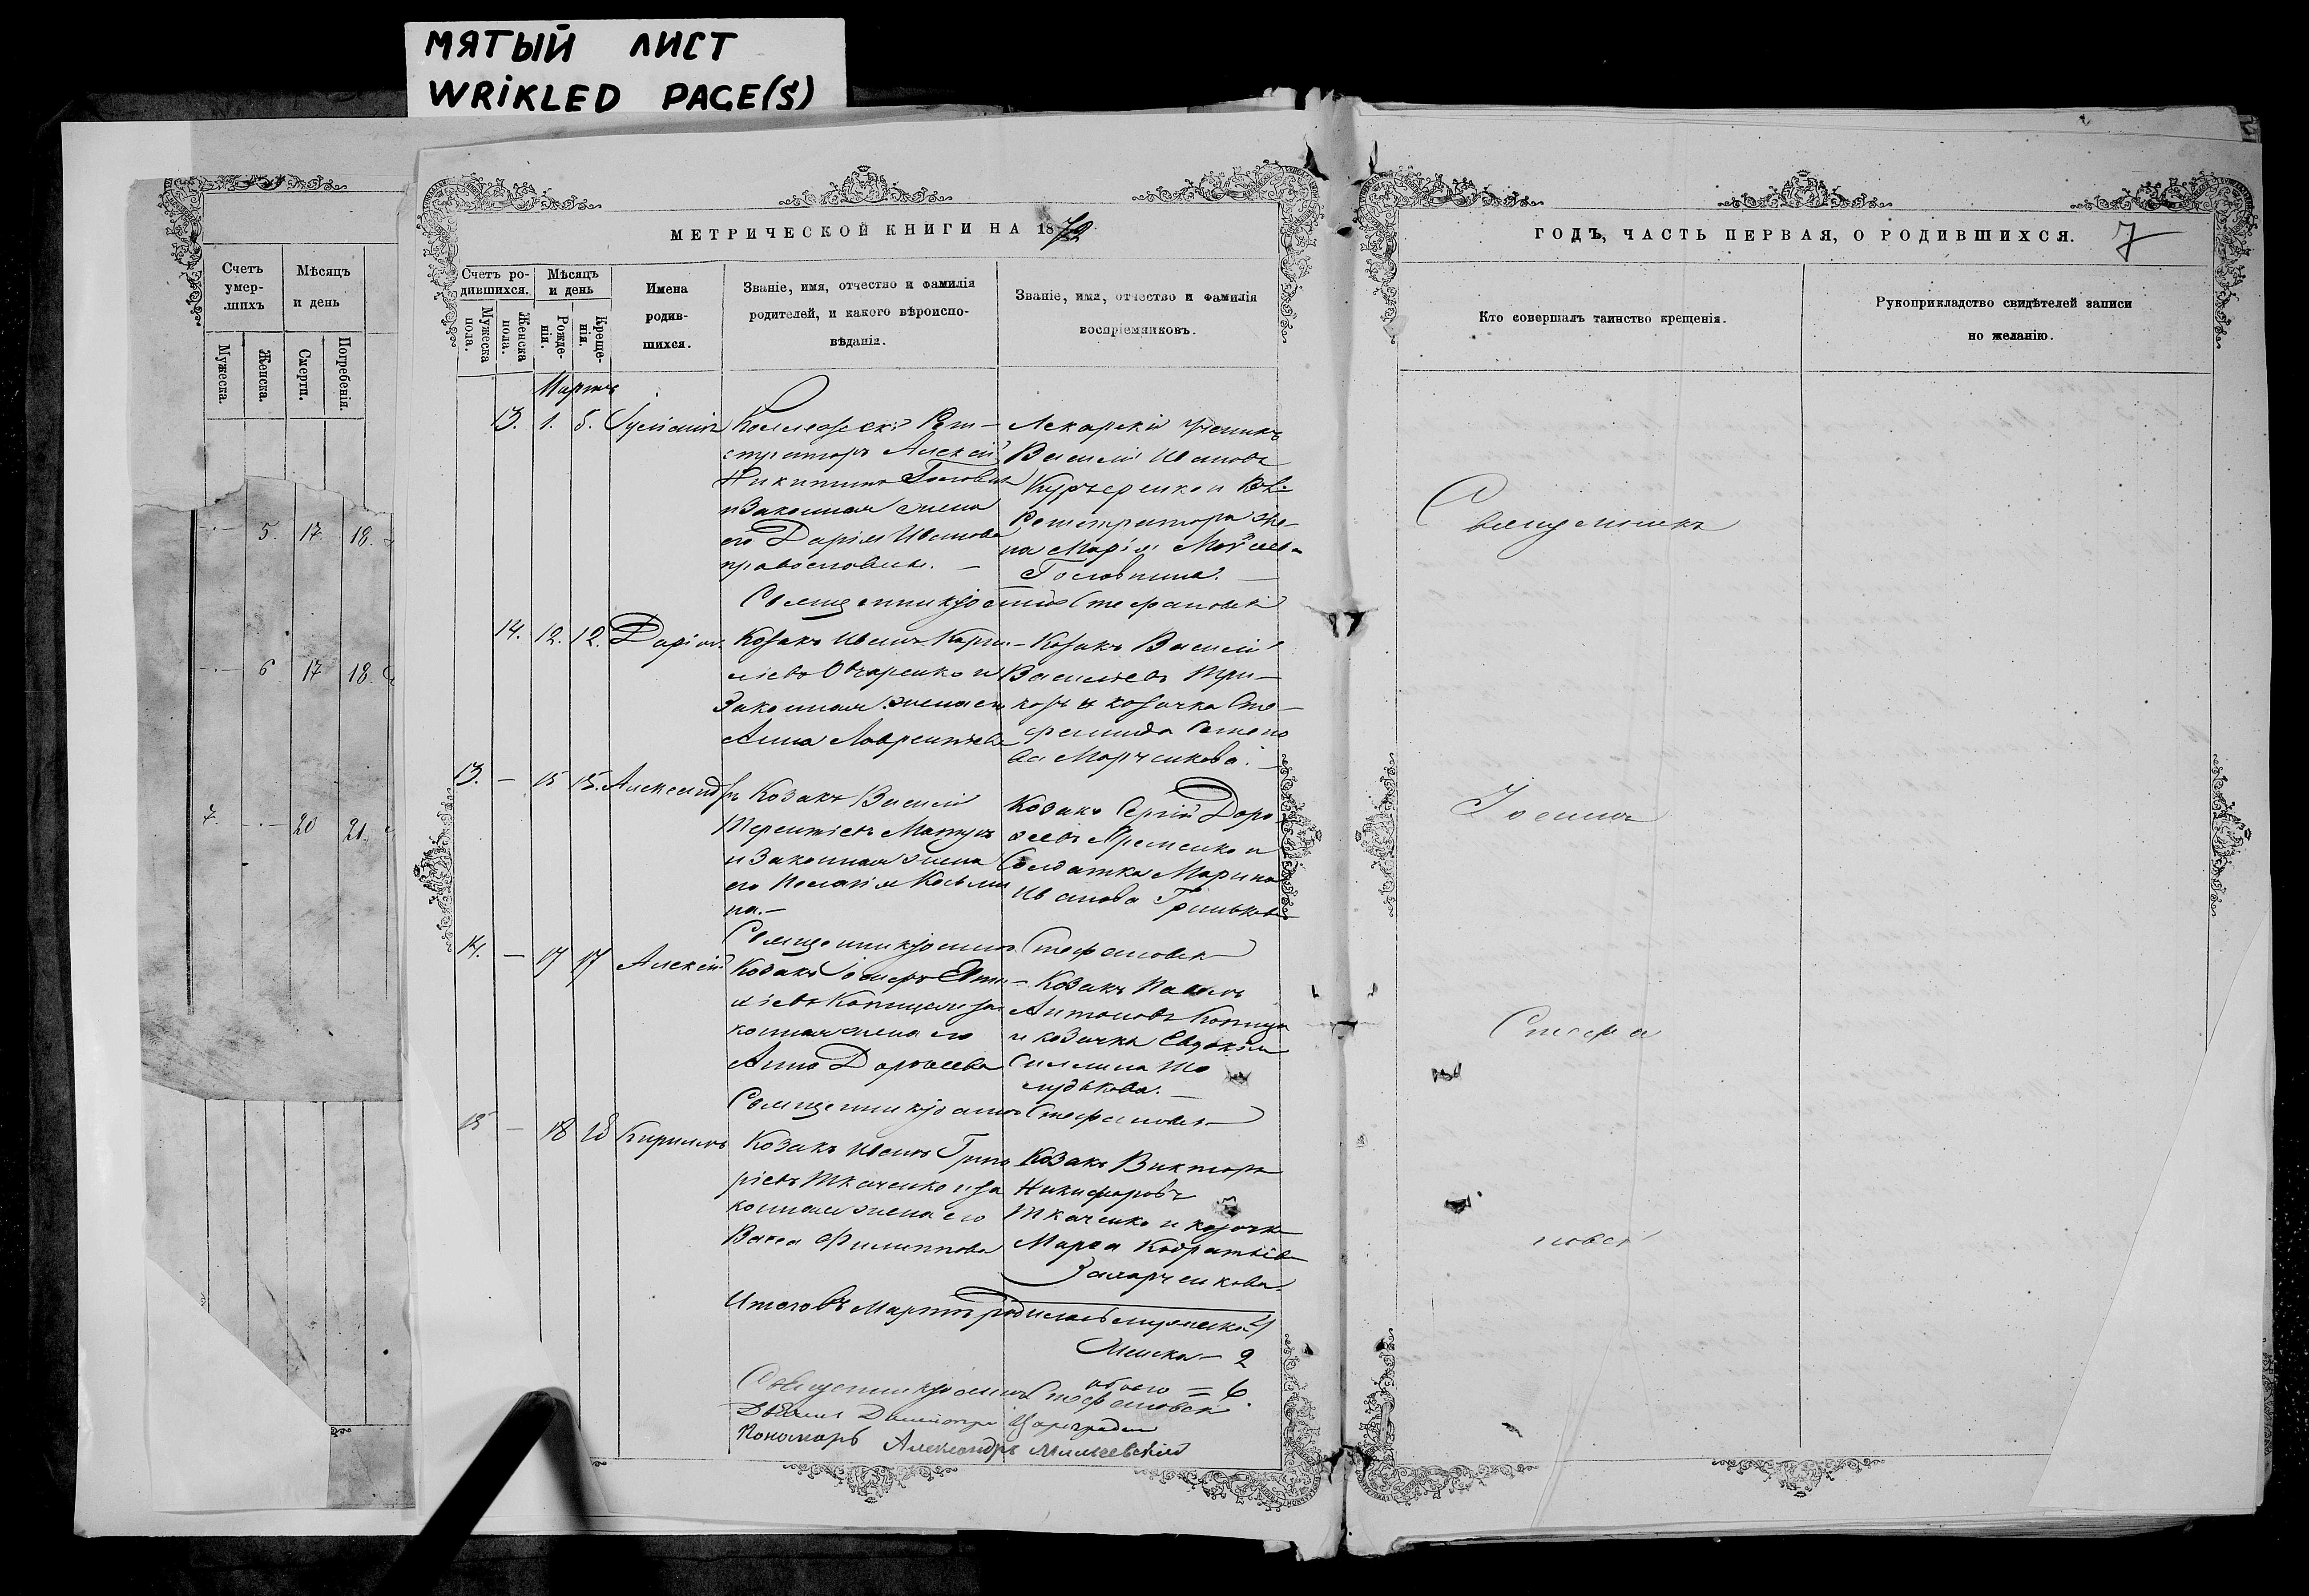 МЯТЫЙ ЛИСТ
WRiKLED PAGE(S)
Счетъ умер-
шихъ
Мѣсяцъ
и день
Мужеска.
Женска.
Смерти.
Погребенія.
5. 17. 18.
6 17 18.
7. 20 21.
МЕТРИЧЕСКОЙ КНИГИ НА 1872
Счетъ ро-
дившихся.
Мужеска
пола.
Женска
пола.
Мѣсяцъ
и день
Рожде-
нія.
Креще-
нія.
Имена
родив-
шихся.
Званіе, имя, отчество и фамилія
родителей, и какого вѣроиспо-
вѣданія.
Званіе, имя, отчество и фамилія
воспріемниковъ.
Мартъ
13. 1. 5.
страторъ Алексій
Никитинъ
и законная жена
его Дарія Иванова
православны. —
Лекарскій ученикъ
Василій Ивановъ
Кучеренко и
Регистратора же-
на Марія
Головкина. —
Священникъ Іоаннъ Стефановскій
14. 12. 12. Дарія.
Козакъ Иванъ Корни-
ліевъ Овчаренко и
Законная жена его
Анна Лаврентьева
Козакъ Василій
Васильевъ
козачка Сте-
фанида Семено
ва Марченкова. —
13. — 15 15. Александръ
Козакъ Василій
Терентіевъ
и Законная жена
его Пелагія Косьми
на. —
Козакъ Сергій Доро-
ѳеевъ Яременко и
Солдатка Марина
Иванова Гринькова
Священникъ Іоаннъ Стефановскій
14. — 17 17 Алексій
Козакъ
законная жена его
Анна Дороѳеева
Козакъ Павелъ
Антоновъ Копица
и козачка Евдокія
Священникъ Іоаннъ Стефановскій
15 — 18 18 Кириллъ
Козакъ Иванъ Григо
ріевъ Ткаченко и за
конная жена его
Васса Филиппова
Козакъ Викторъ
Никифоровъ
Ткаченко и козачка
Марѳа Кодратьева
Захарченкова.
Итого въ Мартѣ родилось мужеска 4
Женска — 2
обоего = 6.
Священникъ Іоаннъ Стефановскій
Дьячекъ Димитрій
Пономарь Александръ
ГОДЪ, ЧАСТЬ ПЕРВАЯ, О РОДИВШИХСЯ. 7
Кто совершалъ таинство крещенія.
Рукоприкладство свидѣтелей записи
по желанію.
Священникъ
Іоаннъ
Стефа
новскій